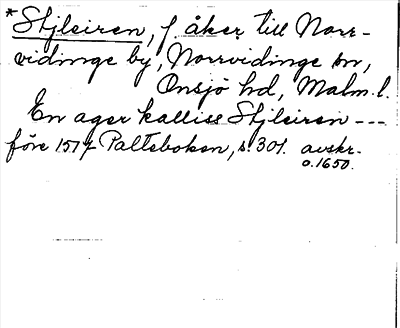 *Stjleiren, f. åker till Norr-
vidinge by, Norrvidinge sn,
Onsjö hd, Malm. l.
En ager kalliss Stjleiren ---
före 1517 Palteboken, s. 301. avskr.
o. 1650.